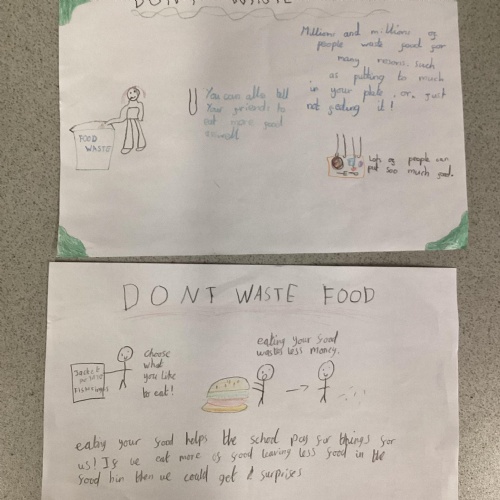 DONT WASTE
Millions and millions of
people waste food for
many resons, such
as putting to much
in your plate, or, just
not feeling it!
You can also tell
your friends to
eat more food
FOOD
WASTE
Lots of people can
put soo much food.
DONT WASTE FOOD
choose
what
you like
to eat!
Jacket
eating your food
wastes less money.
eating your food helps the school pay for things for
us! If we eat more of food leaving less food in the
food bin then we could get surprises